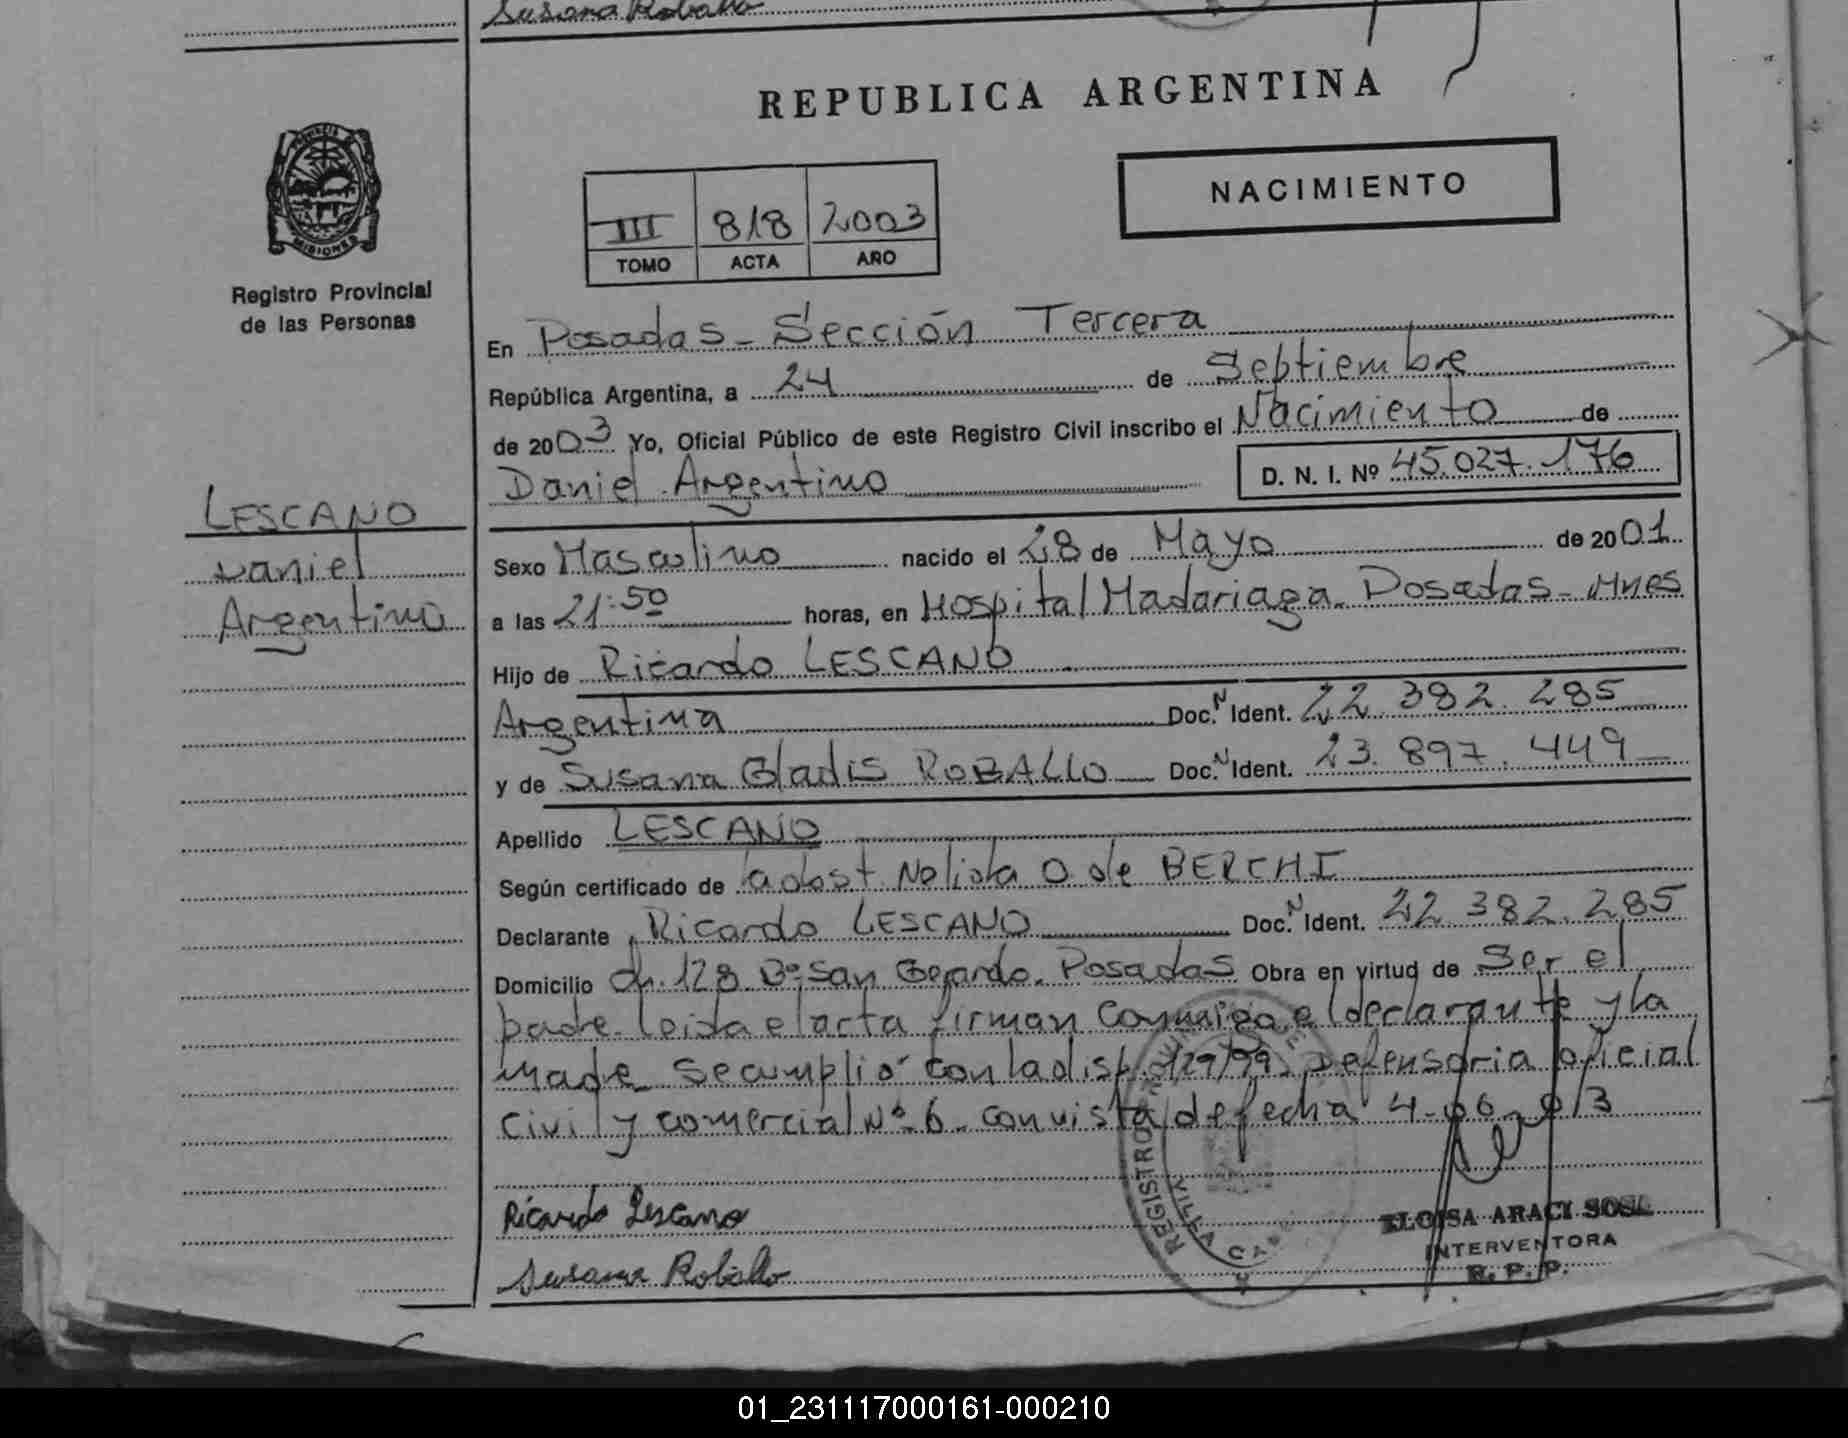 Susana Roballo
REPUBLICA ARGENTINA
PROVINCIA DE
MISIONES
Registro Provincial
de las Personas
NACIMIENTO
III 818 2003
TOMO ACTA AÑO
En Posadas - Sección Tercera
República Argentina, a 24 de Septiembre
de 2003 Yo, Oficial Público de este Registro Civil inscribo el Nacimiento de
Daniel Argentino D. N. I. Nº 45.027.176
LESCANO
Daniel
Argentino
Sexo Masculino nacido el 28 de Mayo de 2001
a las 21:50 horas, en Hospital Madariaga. Posadas - Mnes
Hijo de Ricardo LESCANO
Argentina Doc. N Ident. 22.382.285
y de Susana Gladis ROBALLO Doc. N Ident. 23.897.449
Apellido LESCANO
Según certificado de la obst. Nelida O de BERCHI
Declarante Ricardo LESCANO Doc. N Ident. 22.382.285
Domicilio Ch. 128 Bº San Gerardo. Posadas Obra en virtud de Ser el
padre. Leida el acta firman Conmigo el declarante y la
madre Se cumplió con la disp. 129/99. Defensoria oficial
Civil y comercial Nº 6. con vista de fecha 4-06-03
Ricardo Lescano
Susana Roballo
REGISTRO
VILLA CABELLO
ELOISA ARACI SOSA
INTERVENTORA
R. P. P.
01_231117000161-000210